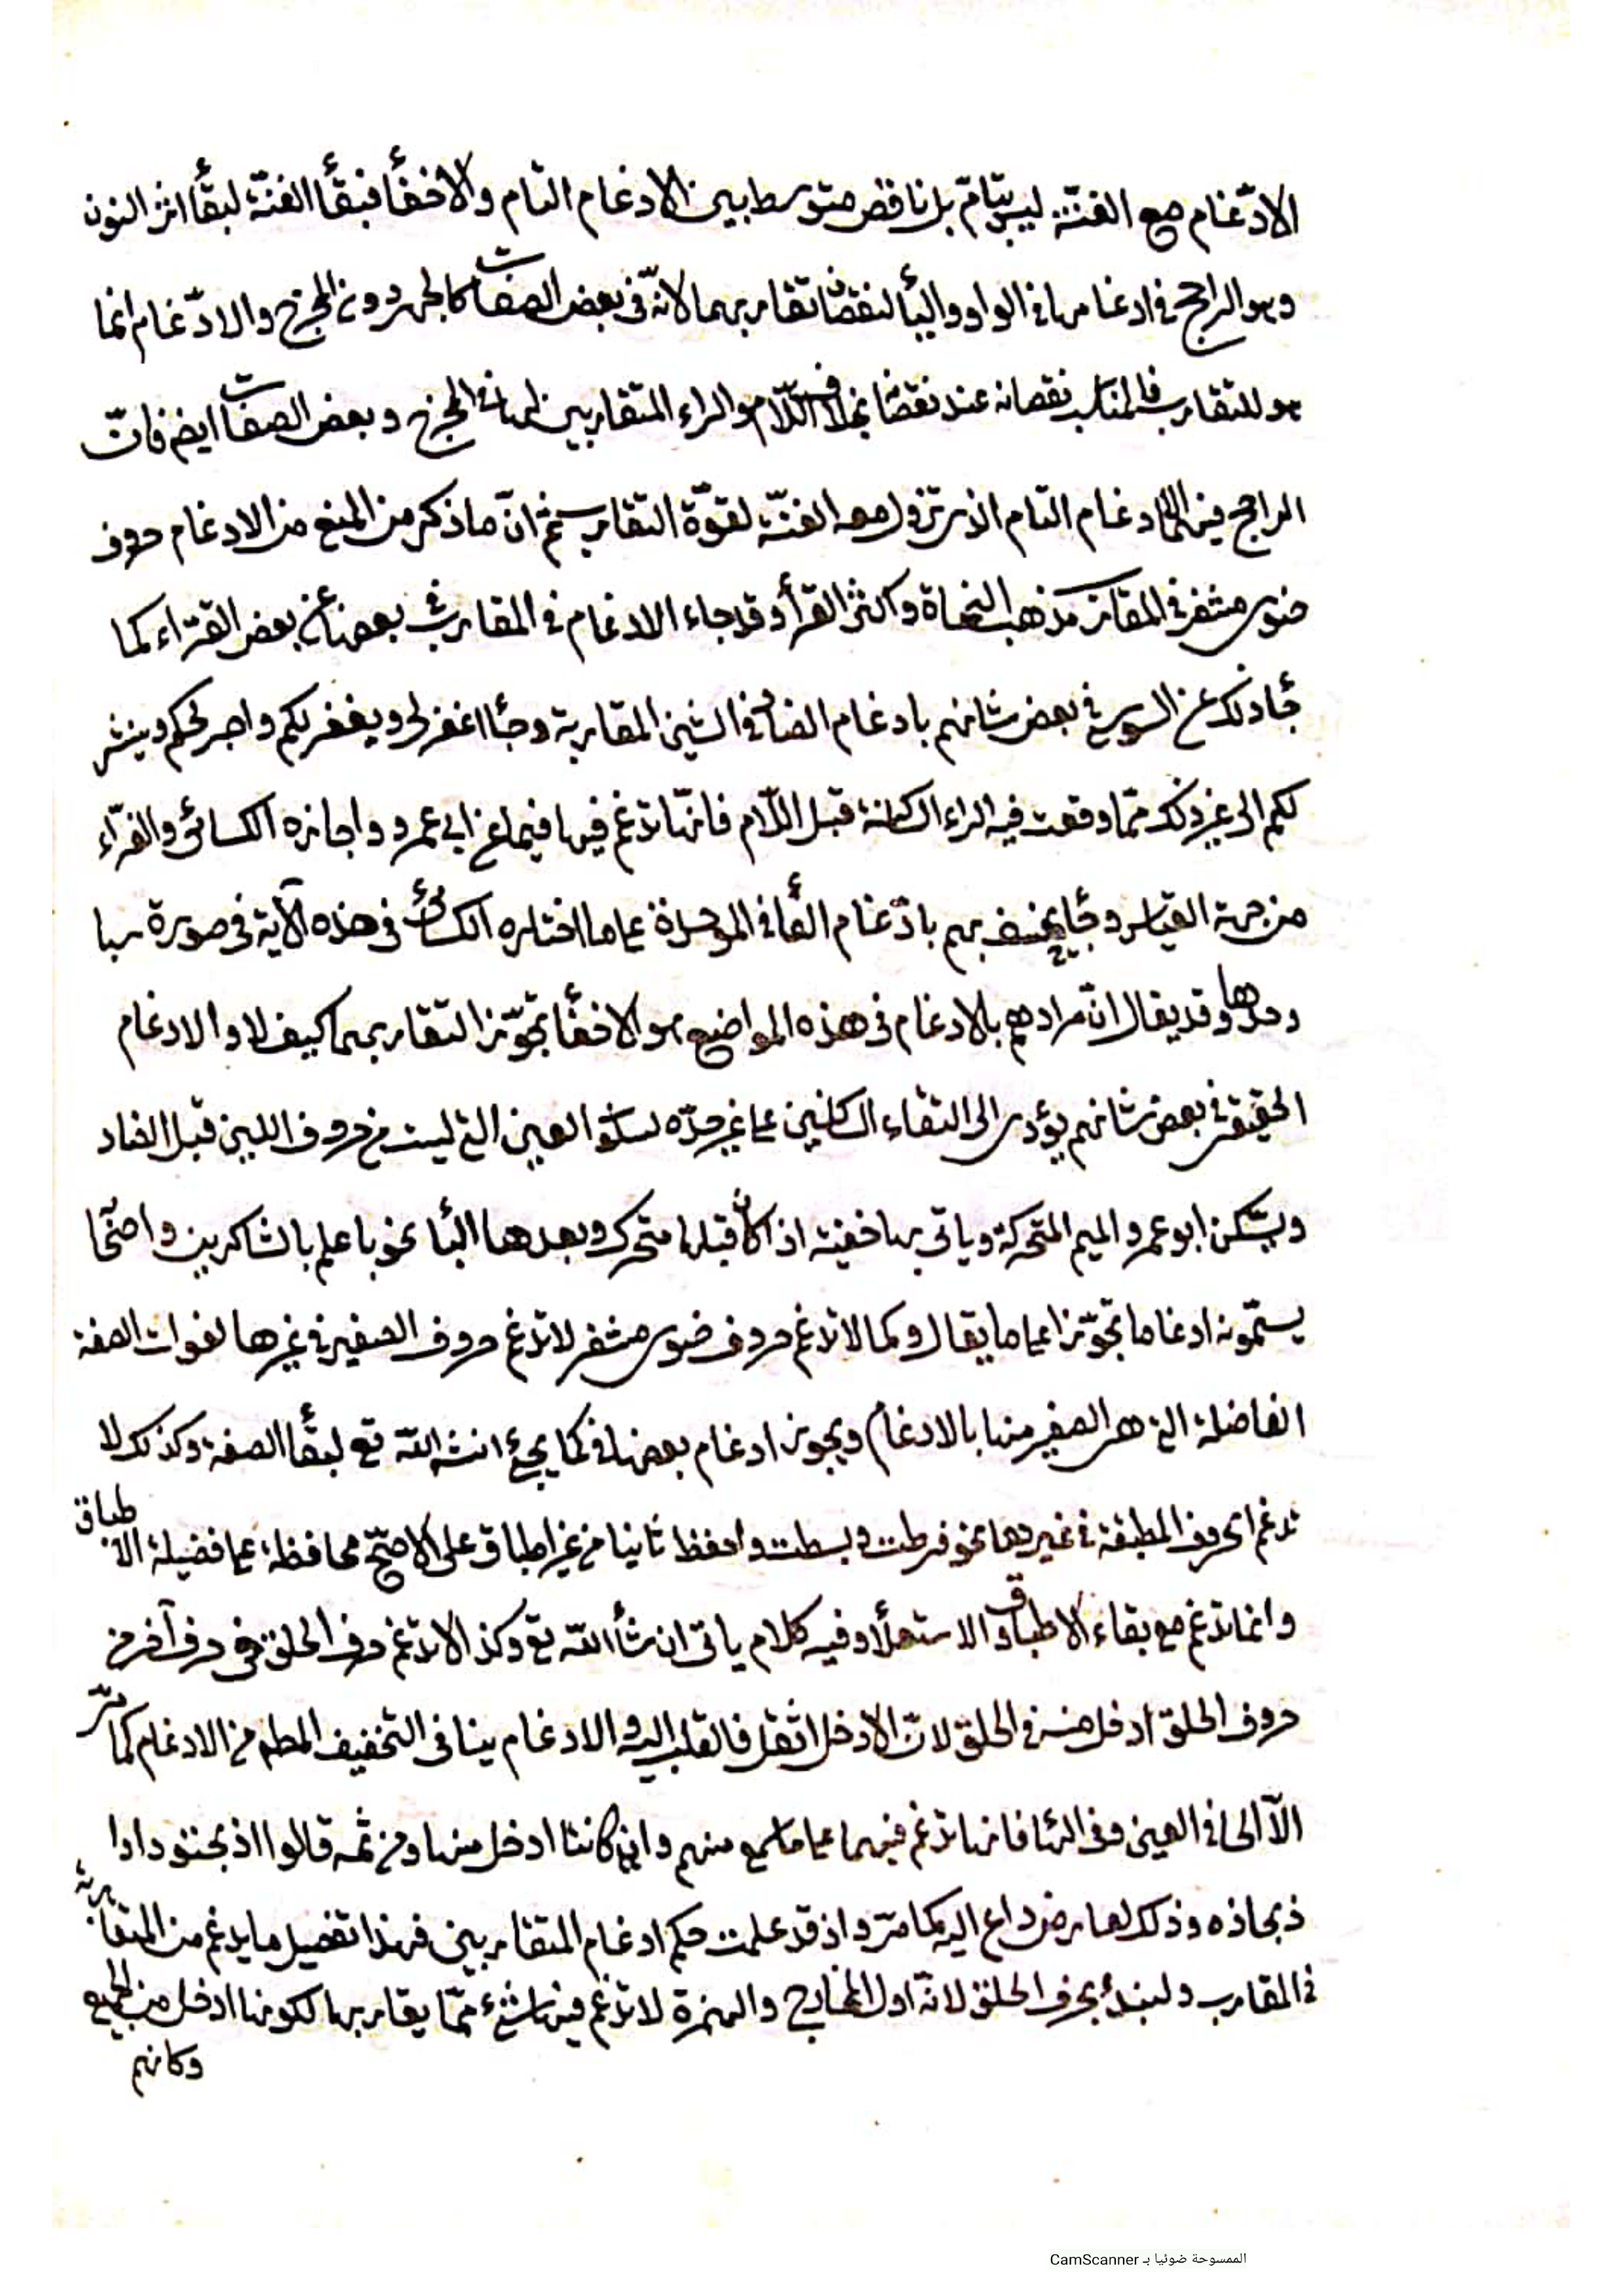 الادّغام مع الغنّة ليس بتامّ بل ناقص متوسط بين الادغام التام والاخفأ فبقأ الغنّة لبقأ اثر النون
وهو الراجح في ادغامها في الواو واليأ لنقصان تقاربهما لانّه في بعض الصفات كالجهر دون المخرج والادّغام انما
هو للتقارب فالمناسب نقصانه عند نقصانه بخلاف اللّام والراء المتقاربين لها في المخرج وبعض الصفات ايضا فانّ
الراجح فيهما الادغام التام الذي تزول معه الغنّة لقوّة التقارب ثم انّ ما ذكر من المنع من الادغام حروف
ضوى مشفر في المقارب مذهب النحاة واكثر القرأ وقد جاء الادغام في المقارب في بعضها عن بعض القرّاء كما
جأ ذلك عن السوسي في بعض شانهم بادغام الضاد في الشين المقاربة وجأ اغفر لي ويغفر لكم واصبر لحكم وينشر
لكم الى غير ذلك ممّا وقعت فيه الراء الساكنة قبل اللّام فانّها تدغم فيها فيما عن ابي عمرو واجازه الكسائي والفرّاء
من جهة القياس وجأ نخسف بهم بادّغام الفأ في الموحدة على ما اختاره الكسائي في هذه الآية في صورة سبا
وحدها وقد يقال انّ مرادهم بالادغام في هذه المواضع هو الاخفأ تجوّزا لتقاربهما كيف لا والادغام
الحقيقي في بعض شانهم يؤدي الى التقاء الساكنين على غير حدّه لسكون العين التي ليست من حروف اللين قبل الضاد
ويسكن ابو عمرو الميم المتحركة وياتي بها خفية اذا كان قبلها متحرك وبعدها البأ نحو باعلم بالشاكرين واصحا
يسمّونه ادغاما تجوّزا على ما يقال وكما لا تدغم حروف ضوى مشفر لا تدغم حروف الصفير في غيرها لفوات الصفة
الفاضلة التي هي الصفير منها بالادغام ويجوز ادغام بعضها في كما يجئ انشاء اللّه تع لبقأ الصفة وكذلك لا
تدغم الحروف المطبقة في غيرها نحو فرطت وبسطت واحفظ ثانيا من غير اطباق على الاصحّ محافظة على فضيلة الاطباق
وانما تدغم مع بقاء الاطباق والاستعلأ وفيه كلام ياتي ان شأ اللّه تع وكذا لا تدغم حرف الحلق في حرف آخر من
حروف الحلق ادخل منه في الحلق لانّ الادخل اثقل فالقلب اليه والادغام ينافي التخفيف المطلوب من الادغام كما مرّ
الّا الحا في العين وفي الها فانها تدغم فيهما على ما سمع منهم وان كانتا ادخل منها ومن ثمه قالوا اذبحتودا وا
ذبحاذه وذلك لعارض داع اليه كما مرّ واذ قد علمت حكم ادغام المتقاربين فهذا تفصيل ما يدغم من المتقاربة
في المقارب ولنبدأ بحرف الحلق لانّه اول المخارج والهمزة لا تدغم فيها شئ ممّا يقاربها لكونها ادخل من الجميع
وكانهم
الممسوحة ضوئيا بـ CamScanner